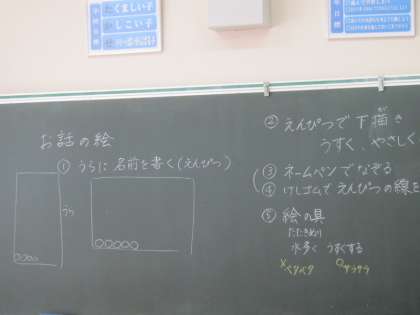 たくましい子
かしこい子
お話の絵
① うらに 名前を書く(えんぴつ)
うら
② えんぴつで 下描き
うすく、やさしく
③ ネームペンで なぞる
④ けしゴムで えんぴつの線を
⑤ 絵の具
水多く うすくする
×ベタベタ ○サラサラ